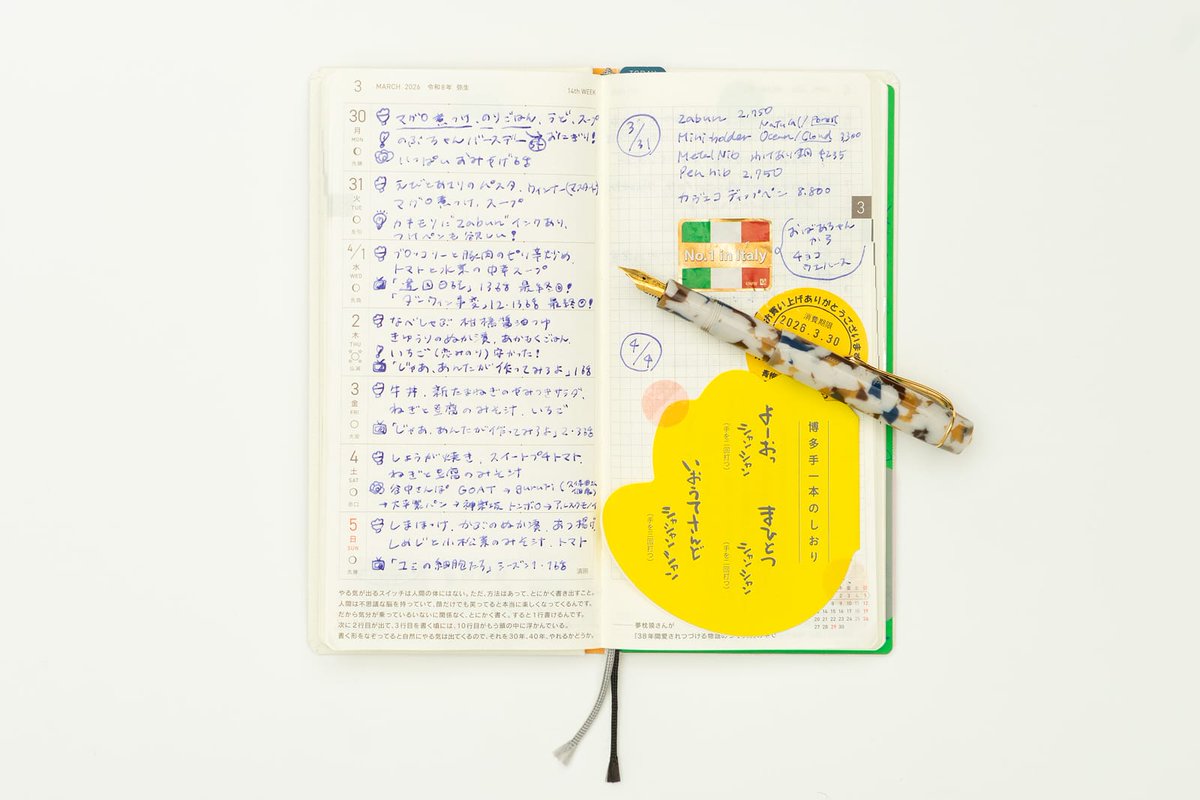 3 MARCH 2026 令和8年 弥生
14th WEEK
30
月
MON
マグロ煮つけ、のりごはん、スープ
のぶちゃんバースデー おにぎり!
いっぱいおみやげ
31
火
TUE
えびとあさりのパスタ、ウィンナー(マスタード)
マグロ煮つけ、スープ
カキモリにZabunインクあり、
つけペンも欲しい!
4/1
水
WED
ブロッコリーと豚肉のピリ辛炒め、
トマトと水菜の中華スープ
最終回!
「ダーウィン事変」12・13話 最終回!
2
木
THU
なべしゃぶ 柑橘醤油つゆ
きゅうりのぬか漬、あかもくごはん、
いちご(恋みのり)安かった!
「じゃあ、あんたが作ってみろよ」1話
3
金
FRI
牛丼、新たまねぎのサラダ、
ねぎと豆腐のみそ汁、いちご
「じゃあ、あんたが作ってみろよ」2・3話
4
土
SAT
しょうが焼き、スイートプチトマト、
ねぎと豆腐のみそ汁
谷中さんぽ GOAT→
→大平製パン→神楽坂 トンボロ→
5
日
SUN
しまほっけ、かぶのぬか漬、あつ揚げ
しめじと小松菜のみそ汁、トマト
「ユミの細胞たち」シーズン1・1話
やる気が出るスイッチは人間の体にはない。ただ、方法はあって、とにかく書き出すこと。
人間は不思議な脳を持っていて、顔だけでも笑ってると本当に楽しくなってくるんです。
だから気分が乗っているいないに関係なく、とにかく書く。すると1行書けるんです。
次に2行目が出て、3行目を書く頃には、10行目がもう頭の中に浮かんでいる。
書く形をなぞってると自然にやる気は出てくるので、それを30年、40年、やれるかどうか。
TODAY
3/31
Zabun 2,750
Natural/Forest
Mini holder Ocean/Cloud 3,300
Metal Nib
Pen nib 2,750
カヴェコ ディップペン 8,800
3
No.1 in Italy
おばあちゃん
から
チョコ
ウエハース
お買い上げありがとうございま
消費期限
2026.3.30
4/4
博多手一本のしおり
よーおっ
シャンシャン
(手を二回打つ)
まひとつ
シャンシャン
(手を二回打つ)
いおうてさんど
シャシャンシャン
(手を三回打つ)
──夢枕獏さんが